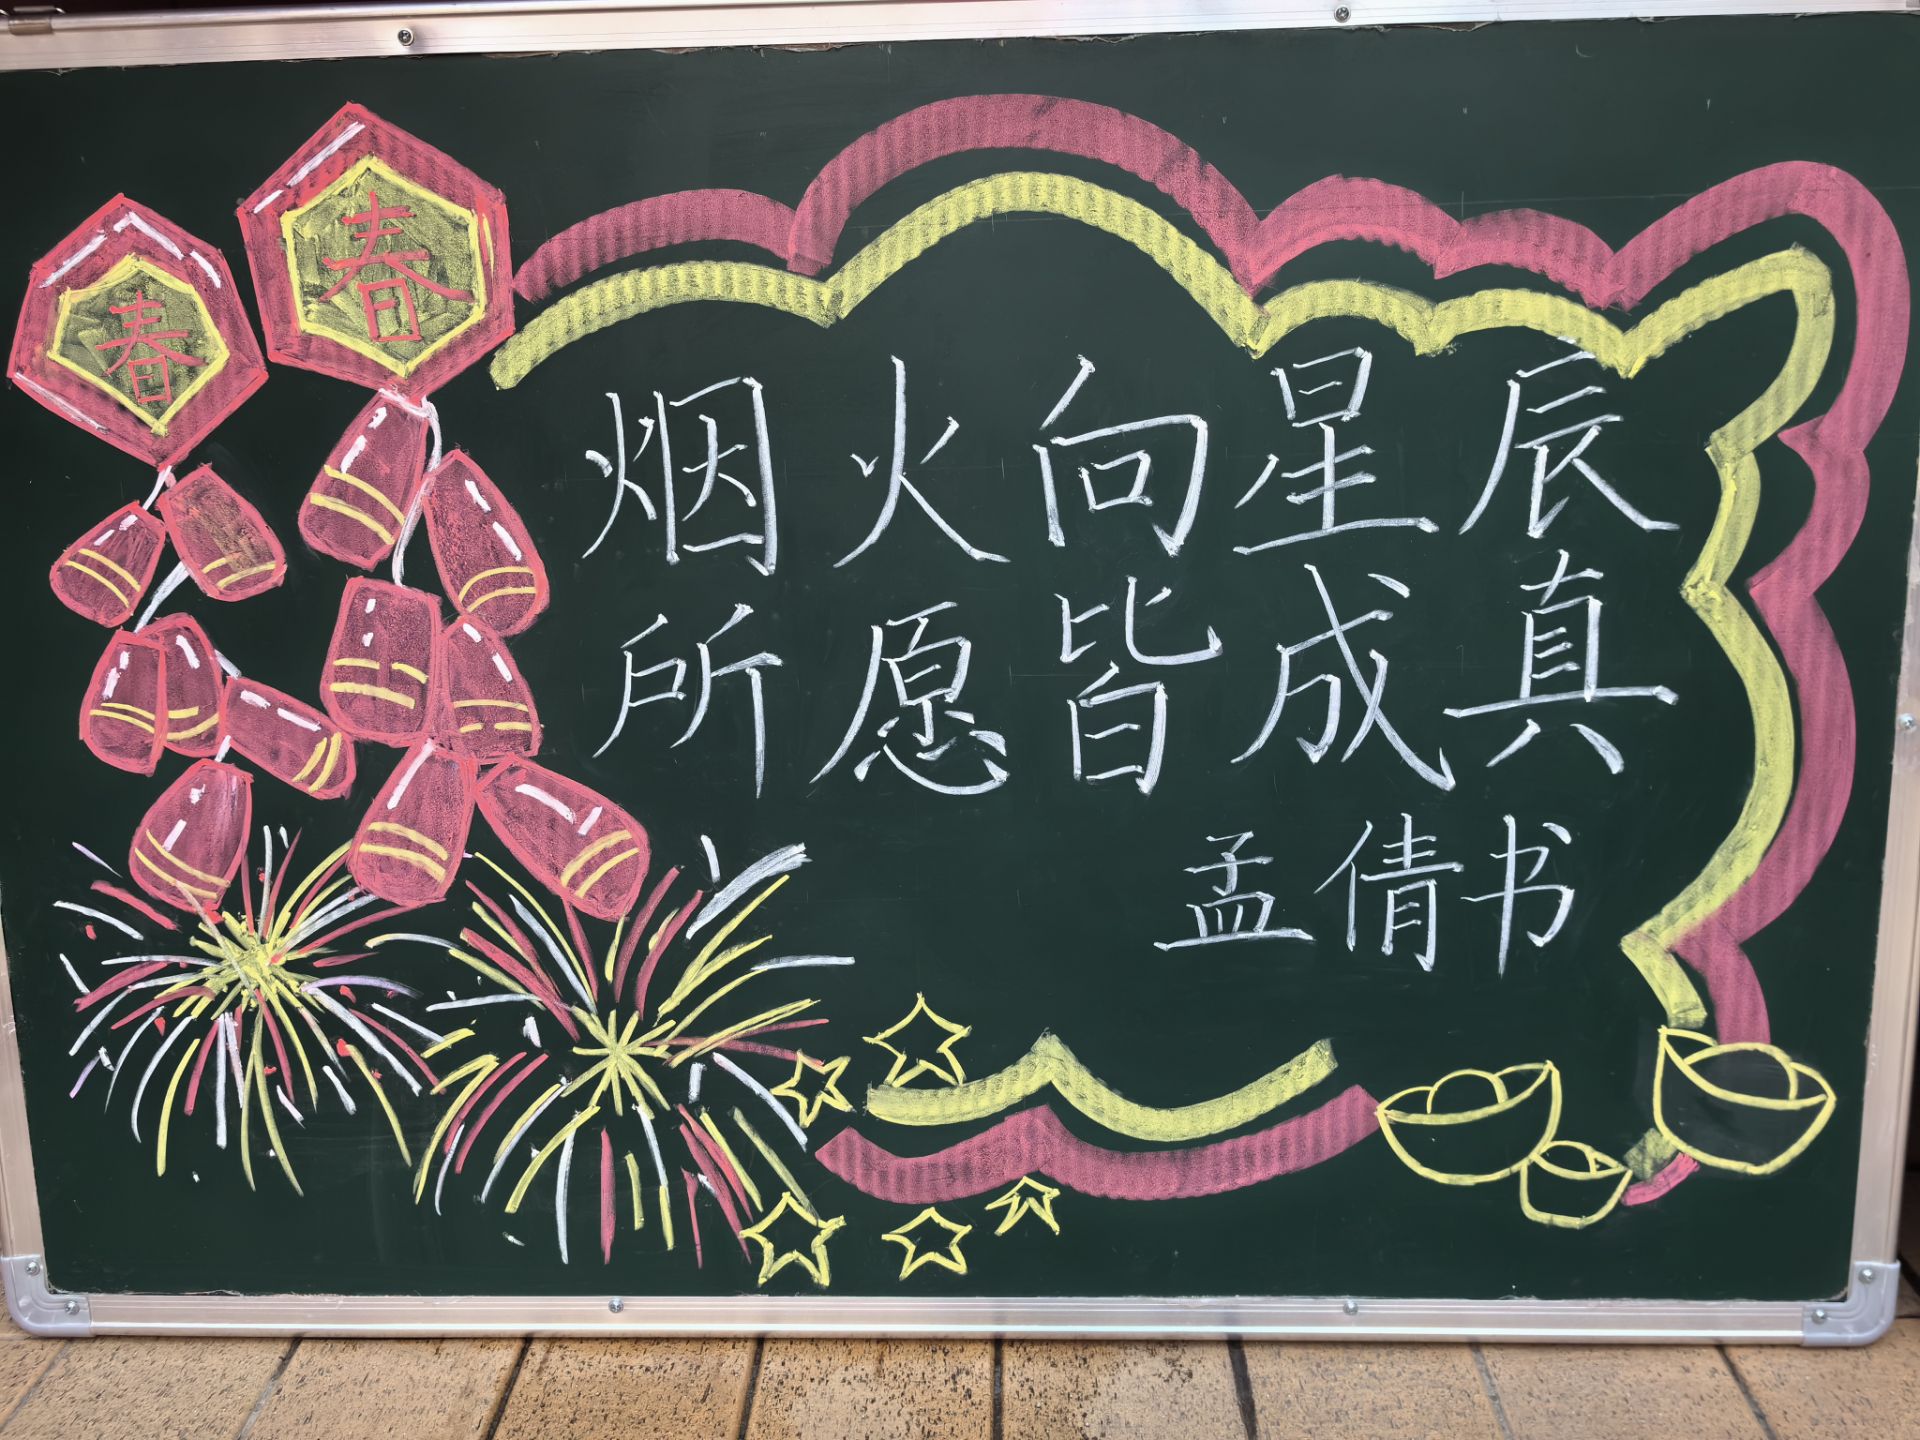 春
春
烟火向星辰
所愿皆成真
孟倩书